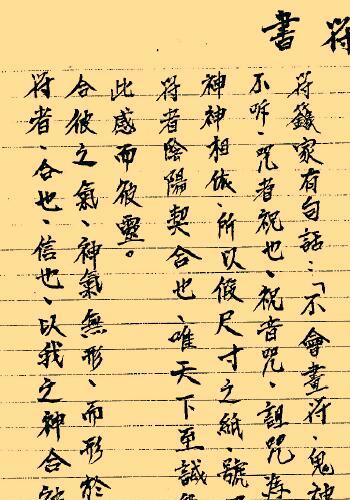 書符
符者、合也、信也、以我之神合
合彼之氣、神氣無形、而形於
此感而彼靈。
符者陰陽契合也、唯天下至誠
神神相依、所以假尺寸之紙、號
不、咒者祝也、祝者咒、詛咒
符籙家有句話：「不會畫符、鬼神